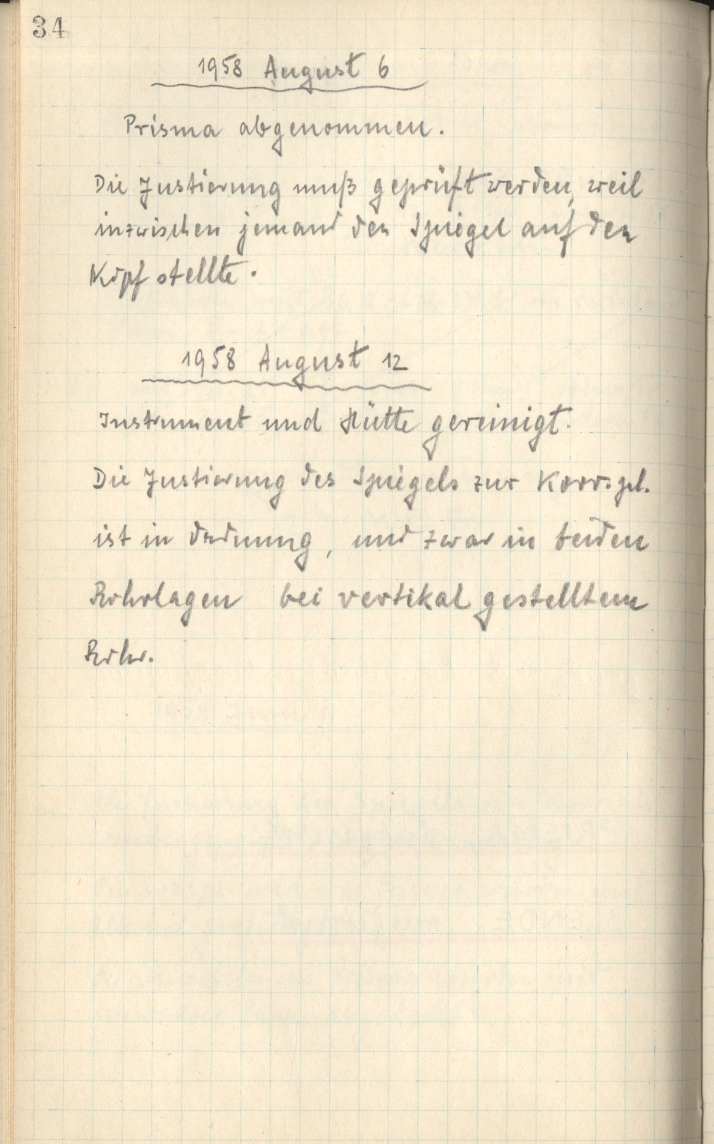 34
1958 August 6
Prisma abgenommen.
Die Justierung muß geprüft werden, weil
inzwischen jemand den Spiegel auf den
Kopf stellte.
1958 August 12
Instrument und Hütte gereinigt.
Die Justierung des Spiegels zur Korrspl.
ist in Ordnung, und zwar in beiden
Rohrlagen bei vertikal gestelltem
Rohr.